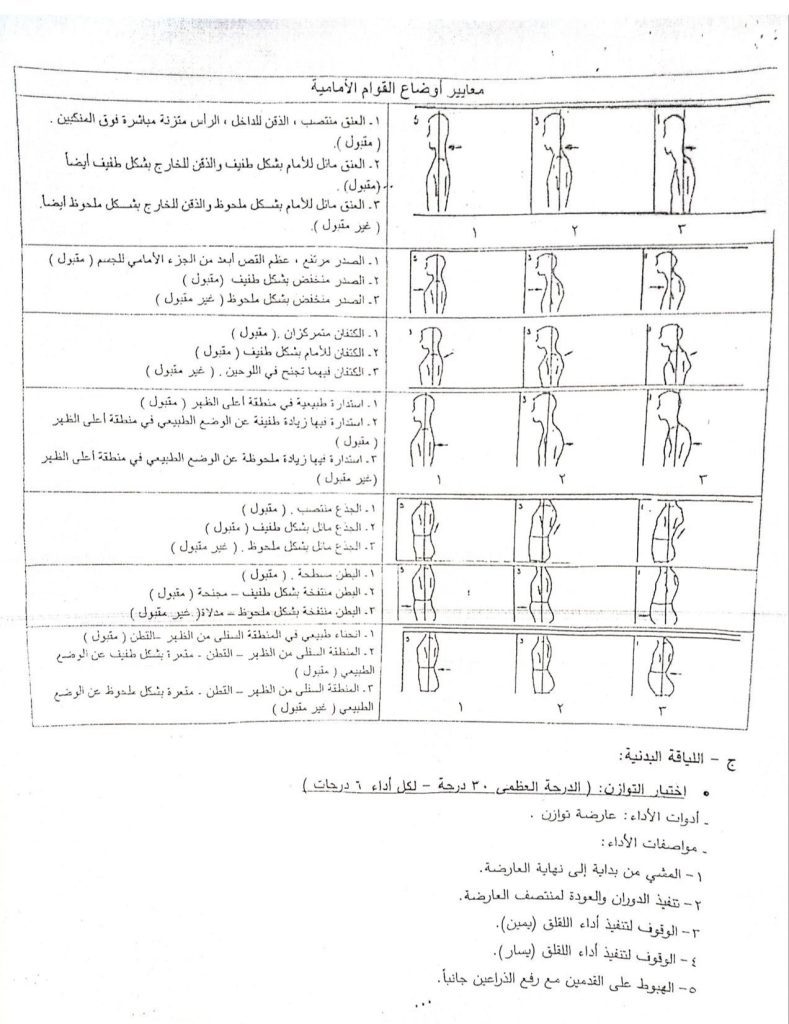 معايير أوضاع القوام الأمامية
١ـ العنق منتصب ، الذقن للداخل ، الرأس متزنة مباشرة فوق المنكبين .
( مقبول ).
٢ـ العنق مائل للأمام بشكل طفيف والذقن للخارج بشكل طفيف أيضاً
(مقبول) .
٣ـ العنق مائل للأمام بشكل ملحوظ والذقن للخارج بشكل ملحوظ أيضاً.
( غير مقبول ).
١ ٢ ٣
١ـ الصدر مرتفع ، عظم القص أبعد من الجزء الأمامي للجسم ( مقبول )
٢ـ الصدر منخفض بشكل طفيف (مقبول )
٣ـ الصدر منخفض بشكل ملحوظ ( غير مقبول )
١ـ الكتفان متمركزان . ( مقبول )
٢ـ الكتفان للأمام بشكل طفيف ( مقبول )
٣ـ الكتفان فيهما تجنح في اللوحين . ( غير مقبول )
١ـ استدارة طبيعية في منطقة أعلى الظهر ( مقبول )
٢ـ استدارة فيها زيادة طفيفة عن الوضع الطبيعي في منطقة أعلى الظهر
( مقبول )
٣ـ استدارة فيها زيادة ملحوظة عن الوضع الطبيعي في منطقة أعلى الظهر
(غير مقبول )
١ ٢ ٣
١ـ الجذع منتصب . ( مقبول )
٢ـ الجذع مائل بشكل طفيف ( مقبول )
٣ـ الجذع مائل بشكل ملحوظ . ( غير مقبول )
١ـ البطن مسطحة . ( مقبول )
٢ـ البطن منتفخة بشكل طفيف – مجنحة ( مقبول )
٣ـ البطن منتفخة بشكل ملحوظ – مدلاة( غير مقبول )
١ـ انحناء طبيعي في المنطقة السفلى من الظهر –القطن ( مقبول )
٢ـ المنطقة السفلى من الظهر – القطن - مقعرة بشكل طفيف عن الوضع
الطبيعي ( مقبول )
٣ـ المنطقة السفلى من الظهر – القطن - مقعرة بشكل ملحوظ عن الوضع
الطبيعي ( غير مقبول )
١ ٢ ٣
ج – اللياقة البدنية:
• إختبار التوازن: ( الدرجة العظمى ٣٠ درجة – لكل أداء ٦ درجات )
ـ أدوات الأداء: عارضة توازن .
ـ مواصفات الأداء:
١– المشي من بداية إلى نهاية العارضة.
٢– تنفيذ الدوران والعودة لمنتصف العارضة.
٣– الوقوف لتنفيذ أداء اللقلق (يمين).
٤– الوقوف لتنفيذ أداء اللقلق (يسار).
٥– الهبوط على القدمين مع رفع الذراعين جانباً.